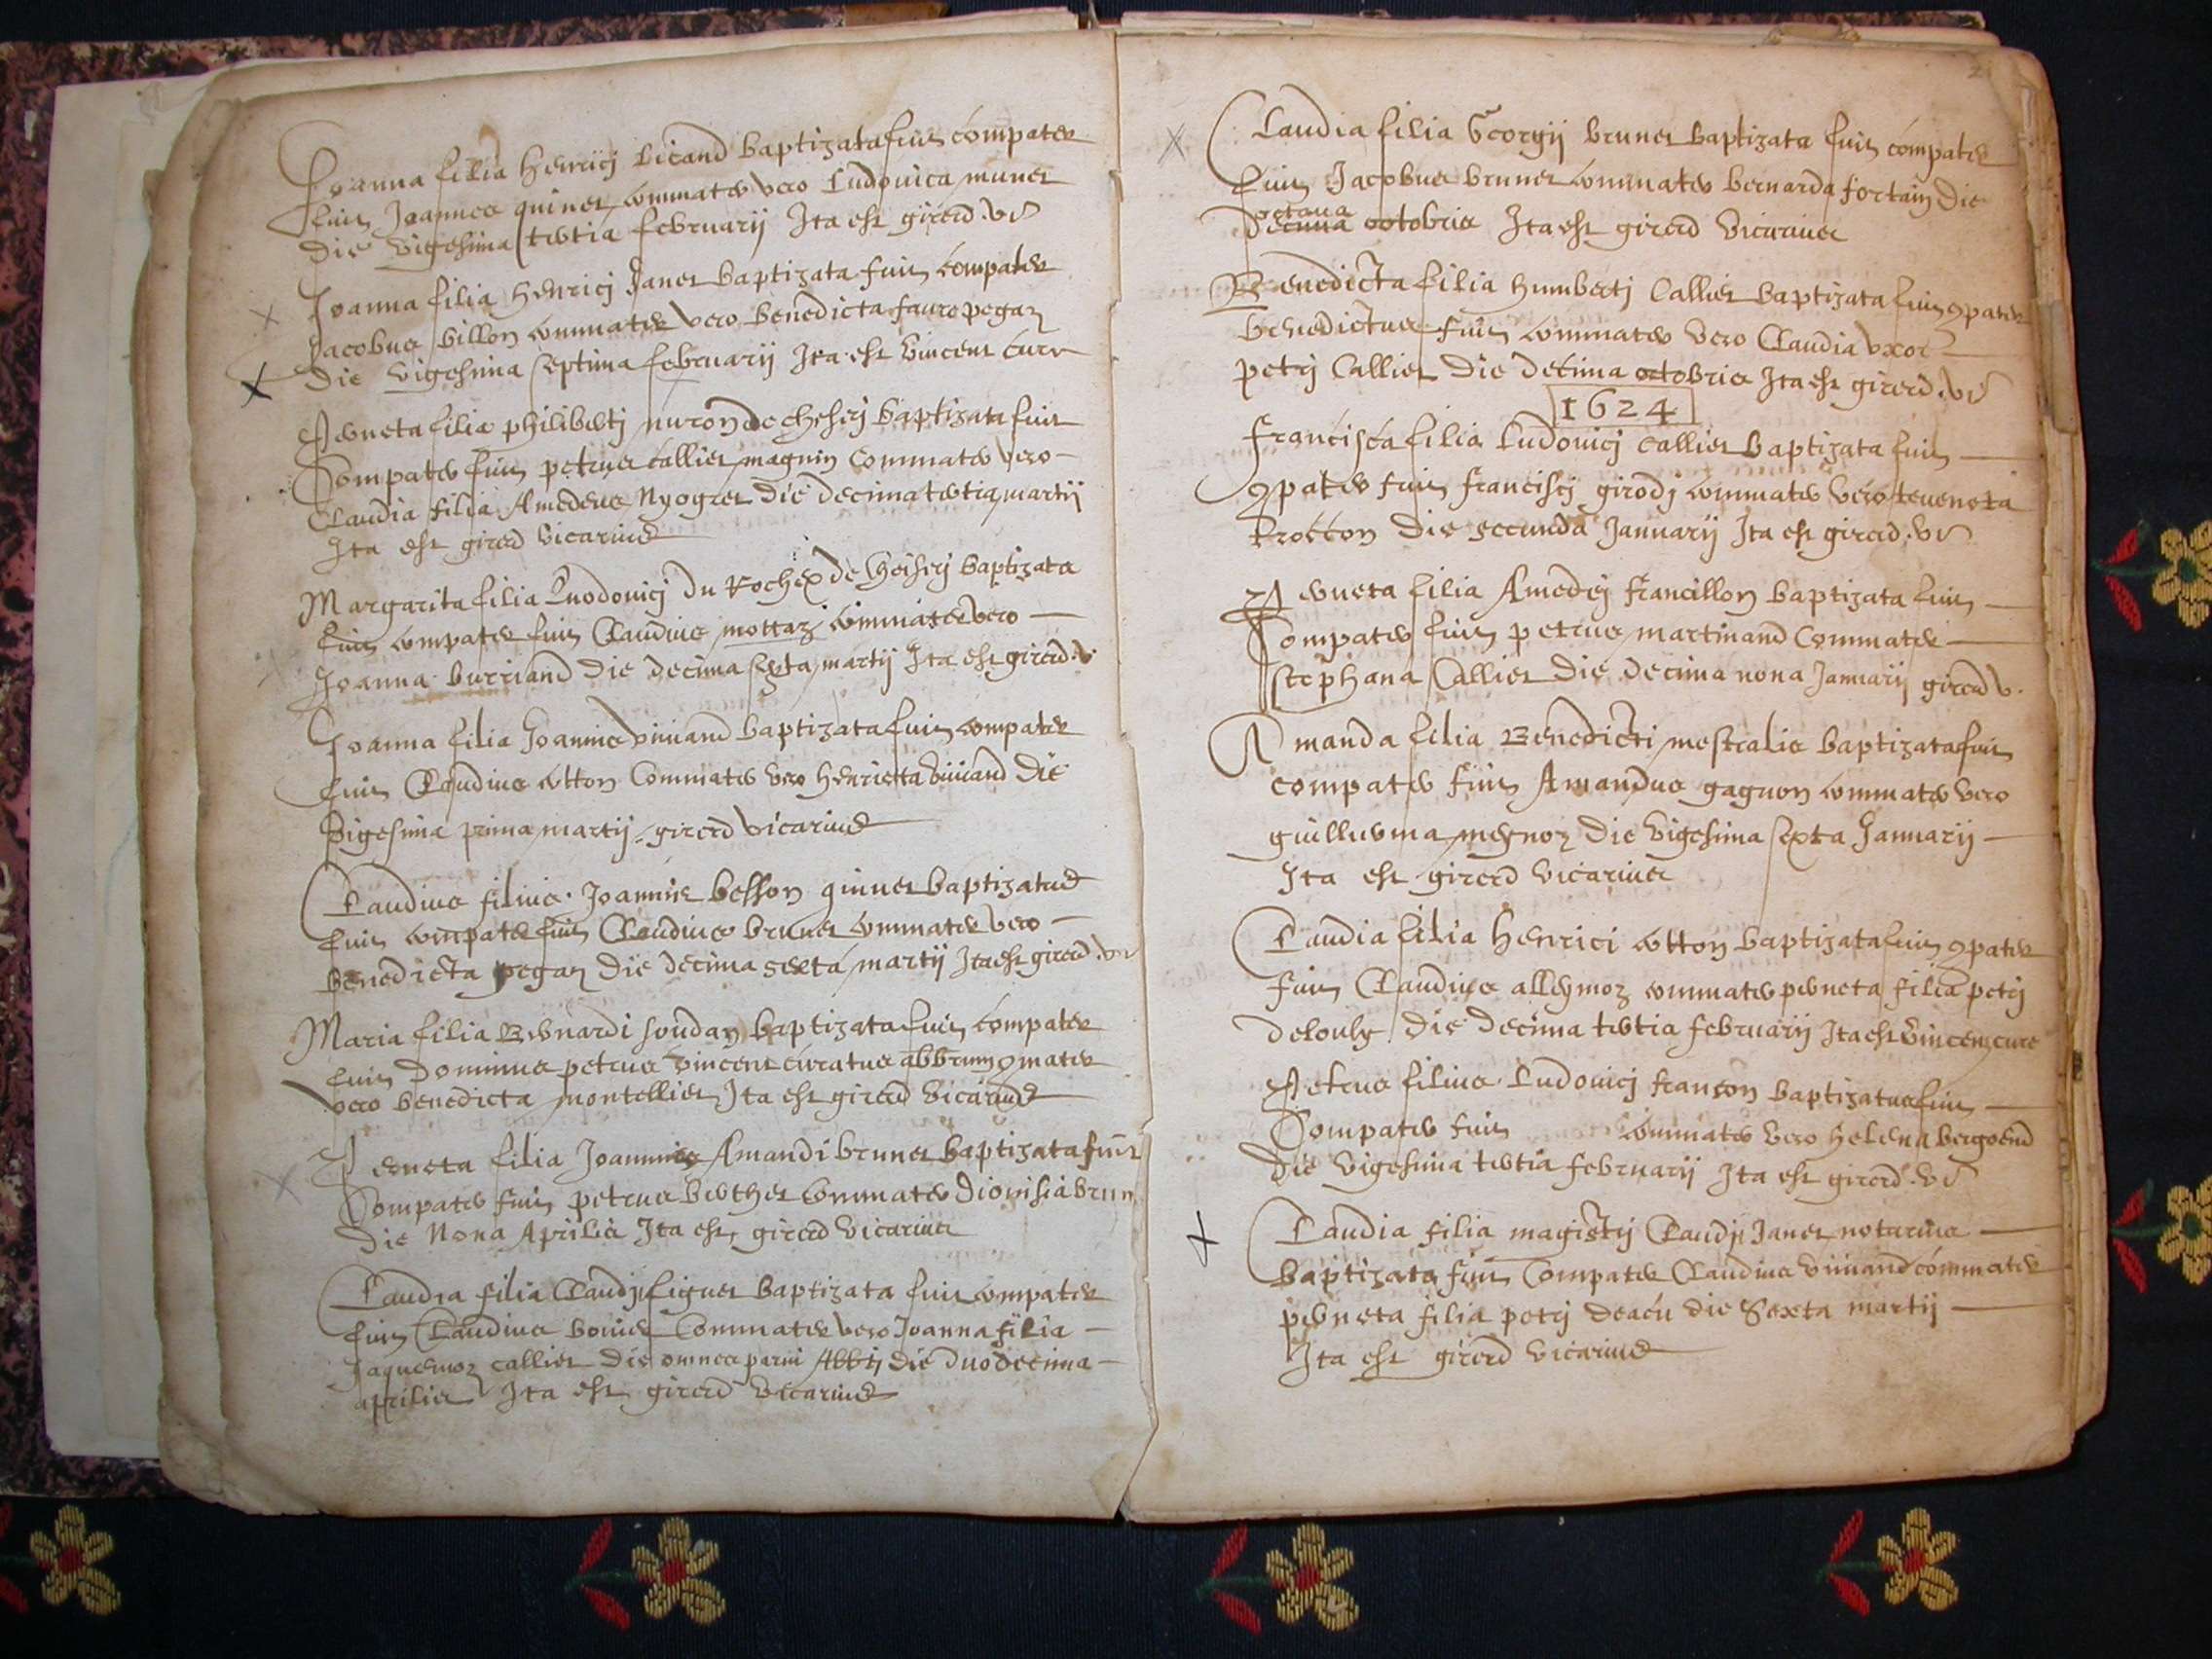 Joanna filia henrici bicand baptizata fuit compater
fuit Joannes quinet commater vero Ludovica munet
die vigesima tertia februarii Ita est girerd
Joanna filia henrici Janet baptizata fuit compater
Jacobus billon commater vero benedicta faure pegaz
die vigesima septima februarii Ita est vincent cure
Perneta filia philiberti muron de cheserj baptizata fuit
Compater fuit petrus callier magnin commater vero
Claudia filia Amedeus Nyogret die decima tertia martii
Ita est girerd vicarius
Margarita filia Luodovicj Du Rochex de cheiserj baptizata
fuit compater fuit Claudius mottaz commater vero
Joanna burriand die decima sexta martij Ita est girerd v
Joanna filia Joannis viviand baptizata fuit compater
fuit Claudius cotton Commater vero henrietta viviand die
vigesima prima martij girerd vicarius
Claudius filius Joannis besson quinet baptizatus
fuit compater fuit Claudius brunet commater vero
Benedicta pegaz die decima sexta martij Ita est girerd
Maria filia Bernardi soudan baptizata fuit compater
fuit Dominus petrus vincent curatus 9mater
vero benedicta montellier Ita est girerd vicarius
Perneta filia Joannis Amandi brunet baptizata fuit
Compater fuit petrus berthet commater dionisia brun
die Nona Aprilis Ita est girerd vicarius
Claudia filia Claudij Liguet baptizata fuit compater
fuit Claudius commater vero Joanna filia
Jaquemoz callier die die duodecima
aprilis Ita est girerd vicarius
2
Claudia filia Georgij brunet baptizata fuit compater
fuit Jacobus brunet commater bernarda fortain die
octava
decima octobris Ita est girerd vicarius
Benedicta filia humberti Callier baptizata fuit 9pater
benedictus fuit commater vero Claudia uxor
petrj Callier die decima octobris Ita est girerd
1624
francisca filia Ludovicj Callier baptizata fuit
9pater fuit franciscj girodj commater vero teveneta
Procton die secunda Januarij Ita est girerd
Perneta filia Amedej francillon baptizata fuit
Compater fuit petrus martinand Commater
stephana Callier die decima nona Januarij girerd v.
Amanda filia Benedicti mestralis baptizata fuit
compater fuit Amandus gagnon commater vero
guillerma meynoz die vigesima sexta Januarij
Ita est girerd vicarius
Claudia filia henrici cotton baptizata fuit 9pater
fuit Claudius alleymoz commater perneta filia petrj
delouly die decima tertia februarij Ita est vincent cure
Petrus filius Ludovicj franson baptizatus fuit
Compater fuit commater vero helena bergoend
die vigesima tertia februarij Ita est girerd
Claudia filia magistrj Claudij Janet notarius
baptizata fuit Compater Claudius viviand commater
perneta filia petrj deacu die Sexta martij
Ita est girerd vicarius